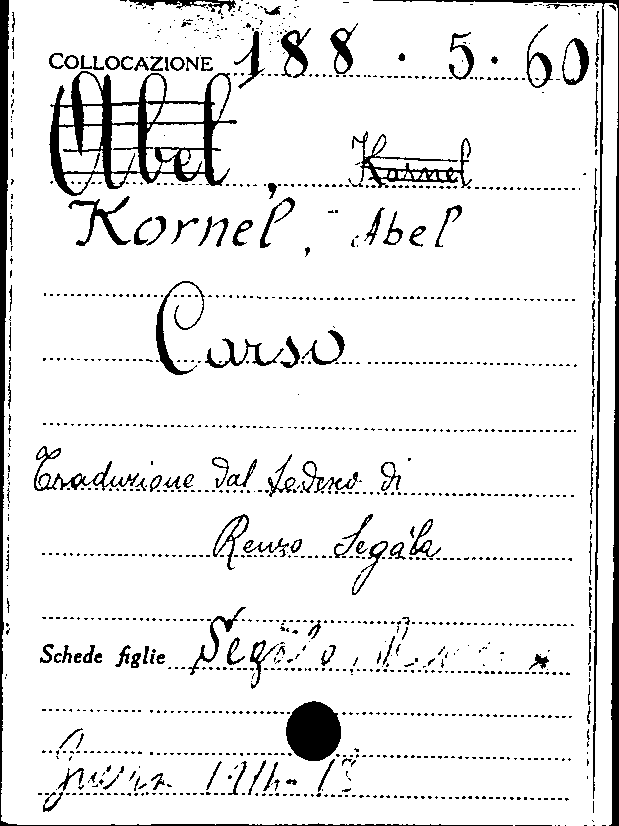 COLLOCAZIONE 188 . 5 . 60
Abel, Kornel
Kornel, Abel
Carso
Traduzione dal Tedesco di
Renzo Segàla
Schede figlie Segàla,
Guerra